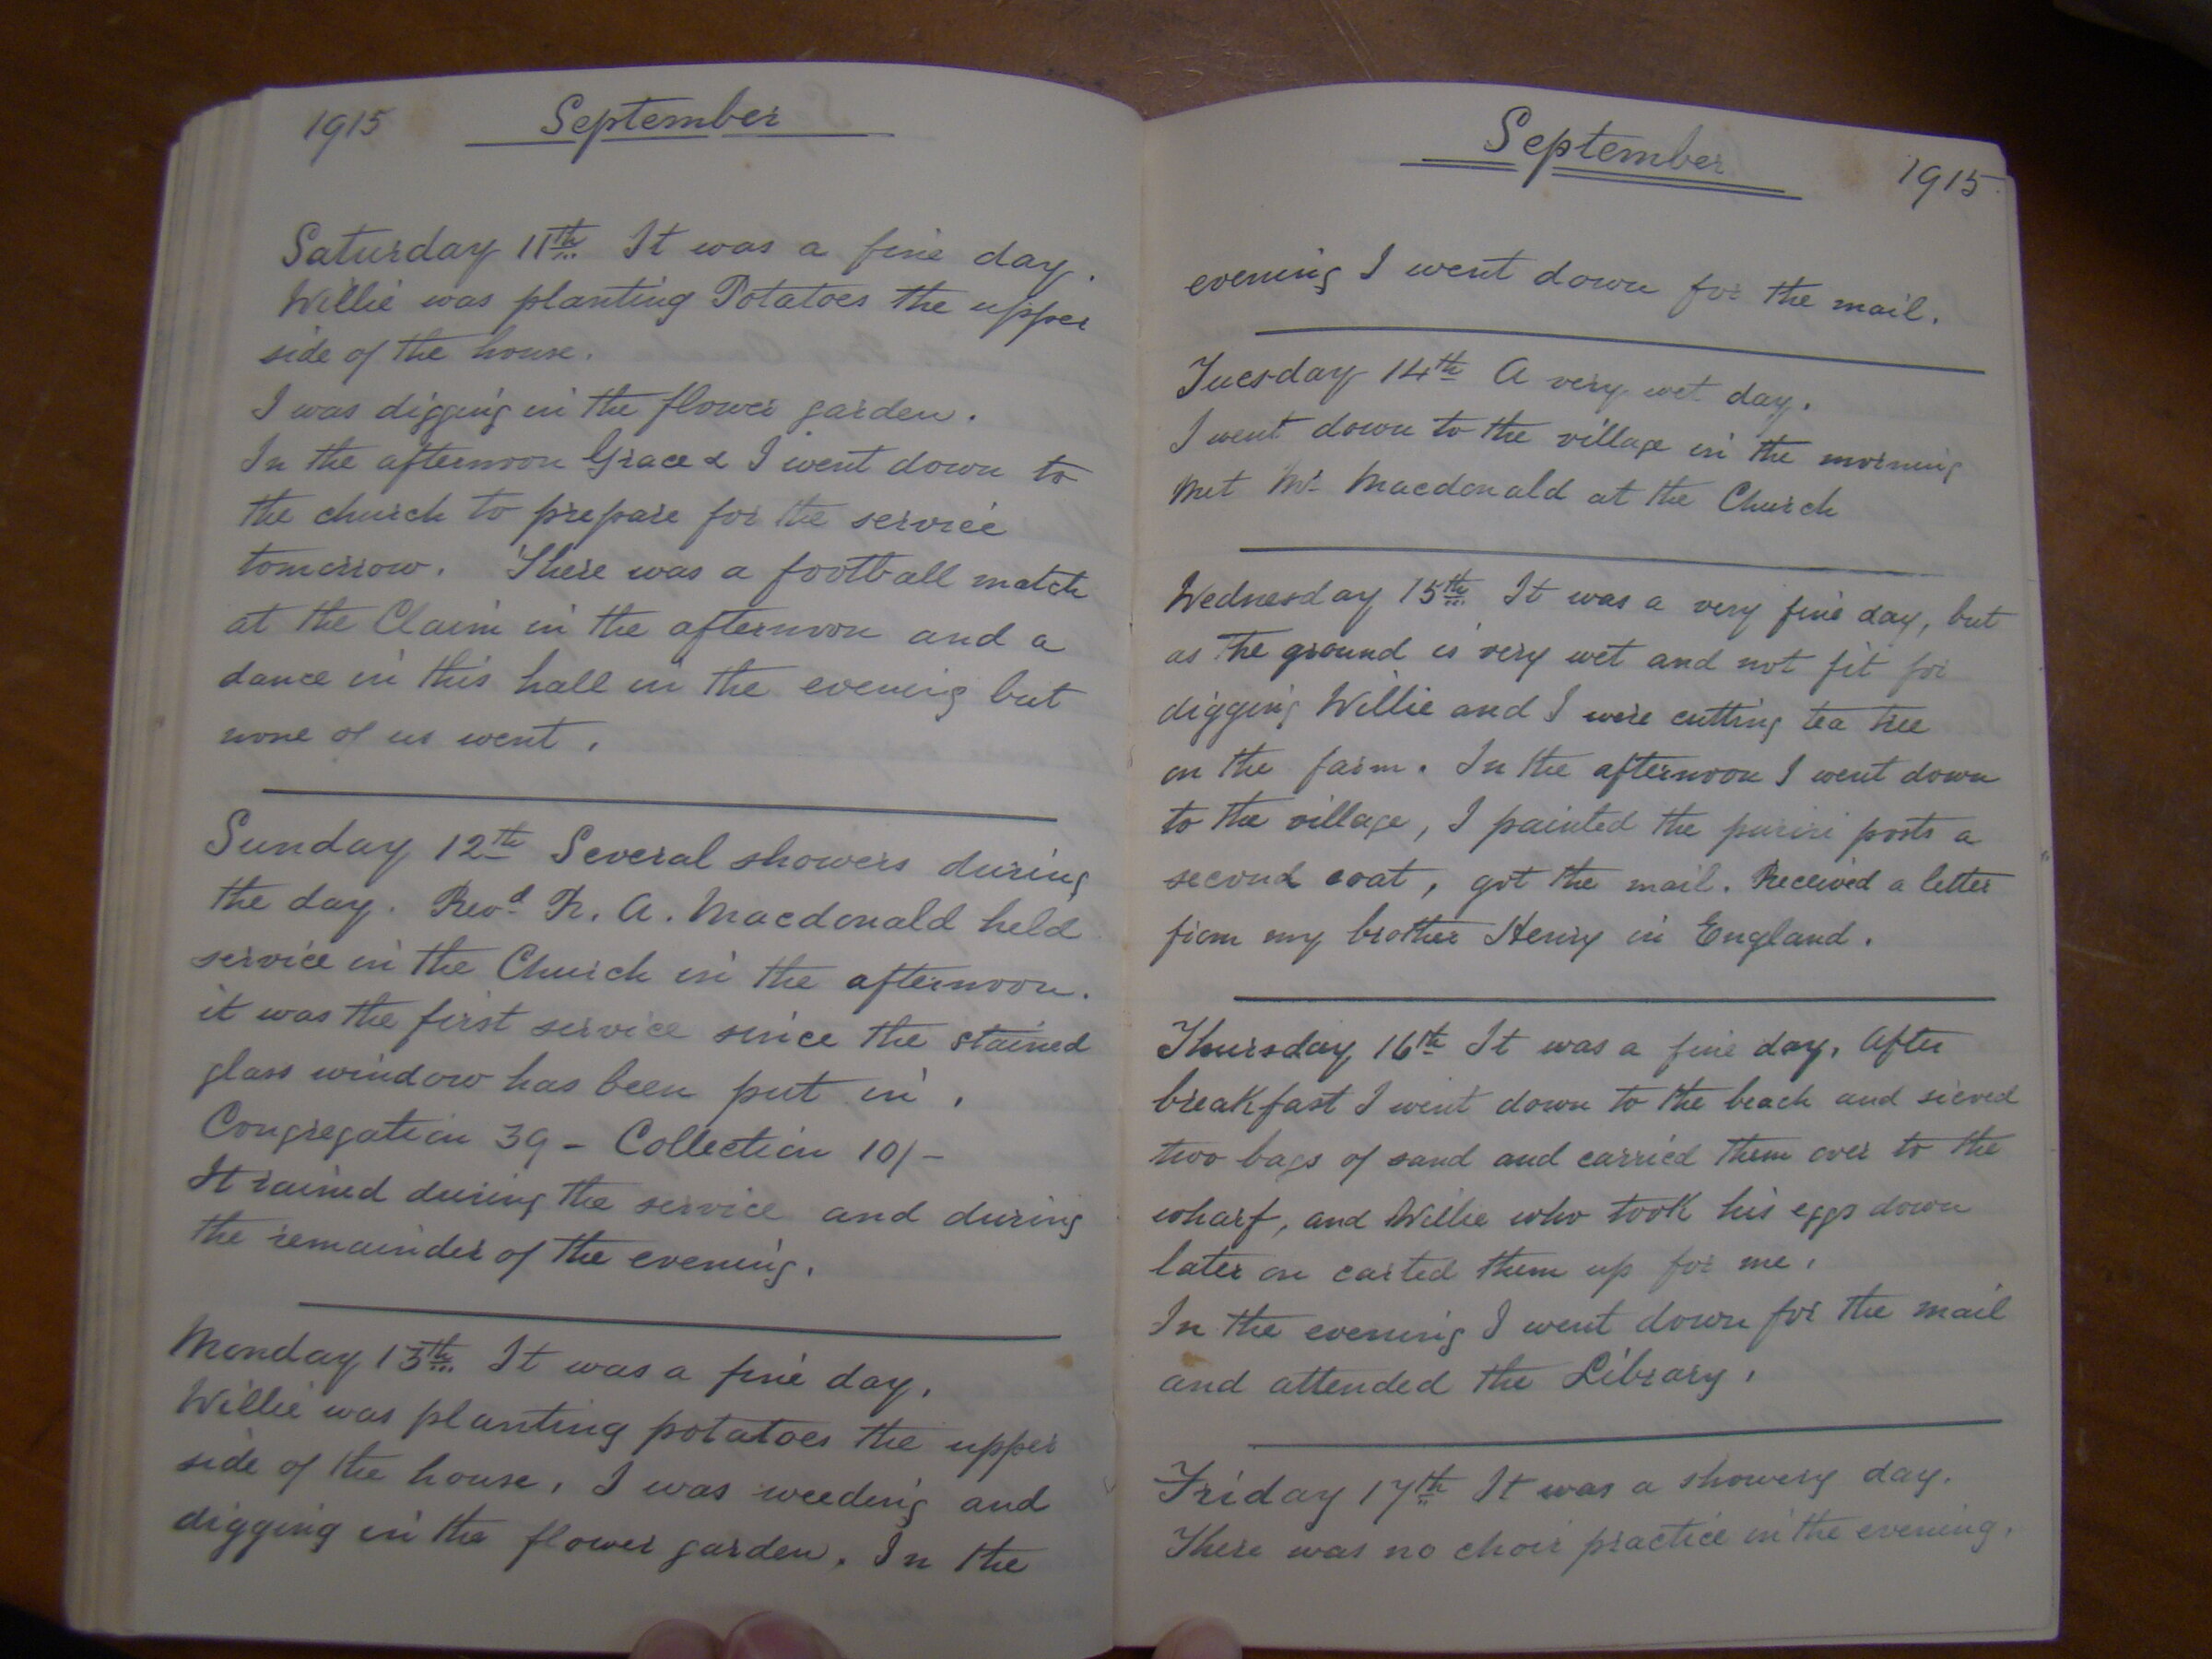 1915 September
Saturday 11th It was a fine day.
Willie was planting Potatoes the upper
side of the house.
I was digging in the flower garden.
In the afternoon Grace & I went down to
the church to prepare for the service
tomorrow. There was a football match
at the Claim in the afternoon and a
dance in this hall in the evening but
none of us went.
Sunday 12th Several showers during
the day. Revd R. A. Macdonald held
service in the Church in the afternoon.
it was the first service since the stained
glass window has been put in.
Congregation 39 - Collection 10/-
It rained during the service and during
the remainder of the evening.
Monday 13th It was a fine day.
Willie was planting potatoes the upper
side of the house. I was weeding and
digging in the flower garden. In the
September 1915
evening I went down for the mail.
Tuesday 14th A very wet day.
I went down to the village in the morning
Met Mr Macdonald at the Church
Wednesday 15th It was a very fine day, but
as the ground is very wet and not fit for
digging Willie and I were cutting tea tree
on the farm. In the afternoon I went down
to the village, I painted the puriri posts a
second coat, got the mail. Received a letter
from my brother Henry in England.
Thursday 16th It was a fine day. After
breakfast I went down to the beach and sieved
two bags of sand and carried them over to the
wharf, and Willie who took his eggs down
later on carted them up for me.
In the evening I went down for the mail
and attended the Library.
Friday 17th It was a showery day.
There was no choir practice in the evening.